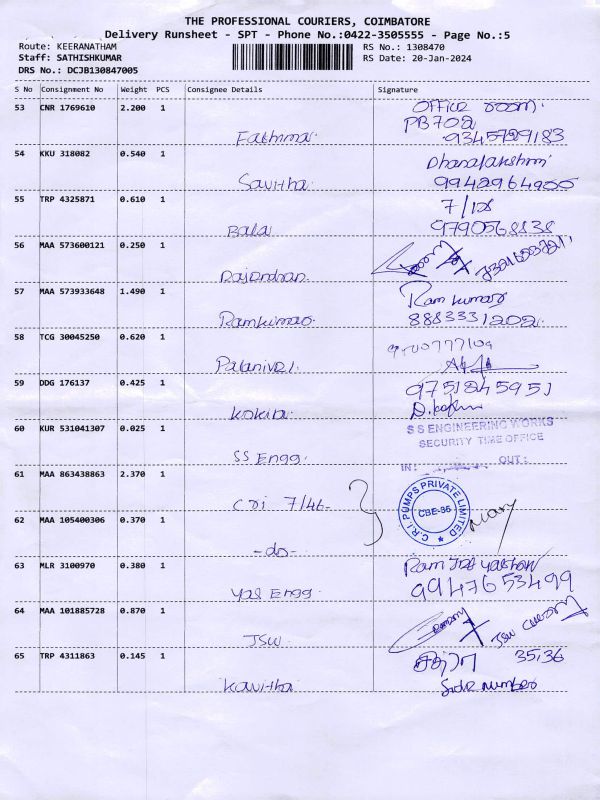 THE PROFESSIONAL COURIERS, COIMBATORE
Delivery Runsheet - SPT - Phone No.:0422-3505555 - Page No.:5
Route: KEERANATHAM
RS No.: 1308470
Staff: SATHISHKUMAR
RS Date: 20-Jan-2024
DRS No.: DCJB130847005
S No Consignment No Weight PCS Consignee Details Signature
53 CNR 1769610 2.200 1 Office room.
PB702
Fathima 9345729183
54 KKU 318082 0.540 1 Dhanalakshmi
Savitha 9942964900
55 TRP 4325871 0.610 1 7/128
Bala 9790568838
56 MAA 573600121 0.250 1
Rajendran
57 MAA 573933648 1.490 1 Ram kumar
Ramkumar 8883331202
58 TCG 30045250 0.620 1
Palanivel
59 DDG 176137 0.425 1 9751245951
Kokila
60 KUR 531041307 0.025 1 S S ENGINEERING WORKS
SECURITY TIME OFFICE
SS Engg. IN: OUT:
61 MAA 863438863 2.370 1
Cri 7/46-
C.R.I. PUMPS PRIVATE LIMITED
CBE-35
62 MAA 105400306 0.370 1
-do-
63 MLR 3100970 0.380 1 Ram
Yal Engg 9947653499
64 MAA 101885728 0.870 1
JSW JSW
65 TRP 4311863 0.145 1 35,36
Kavitha number